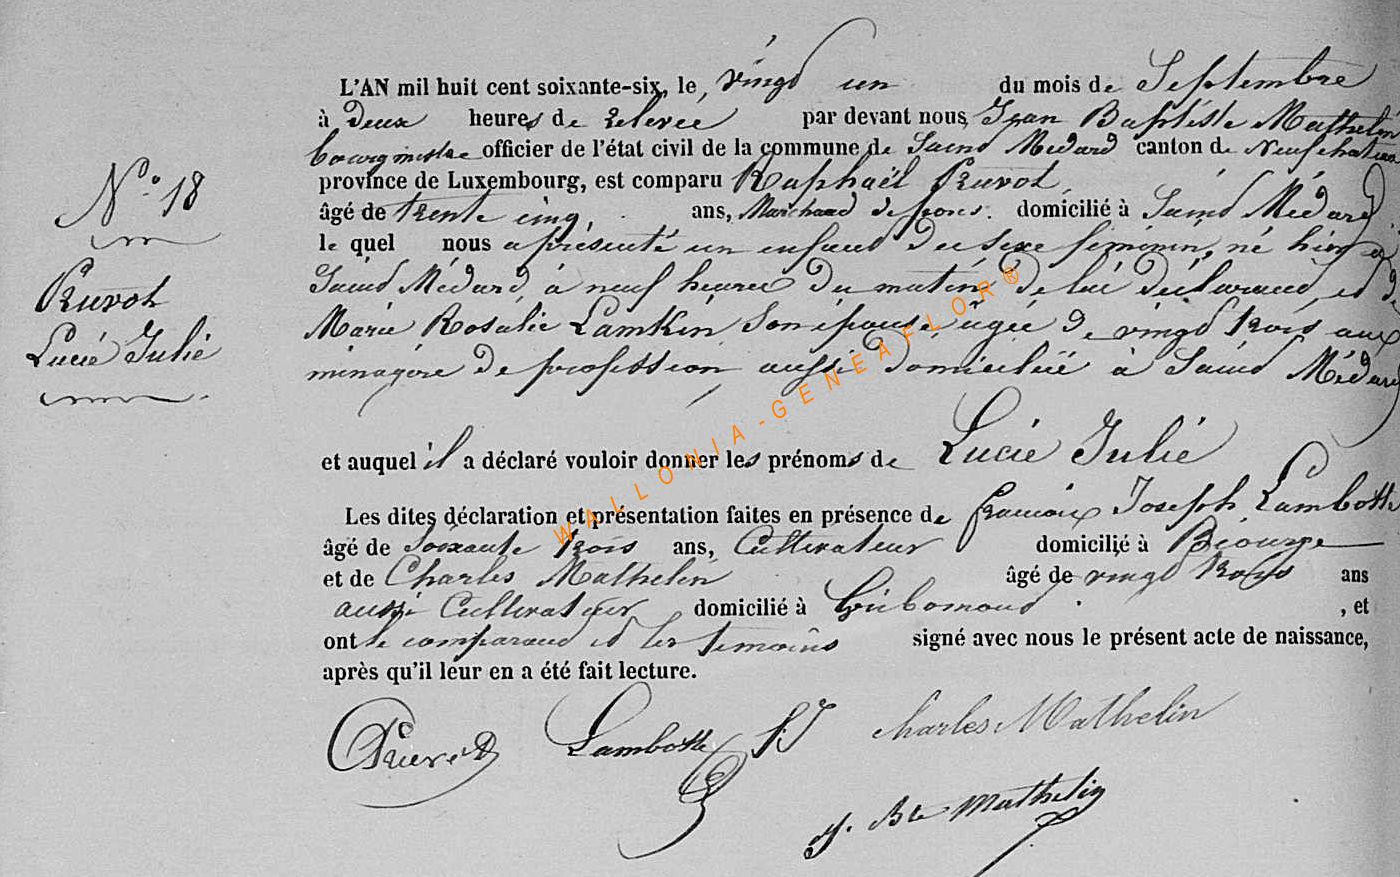 L'AN mil huit cent soixante-six, le, vingt un du mois de Septembre
à Deux heures de relevée par devant nous, Jean Baptiste Mathelin
bourgmestre officier de l'état civil de la commune de Saint Médard canton de Neufchateau
province de Luxembourg, est comparu Raphaël Pruvot,
âgé de trente cinq, ans, Marchand de porcs. domicilié à Saint Médard
le quel nous a présenté un enfant du sexe féminin, né hier à
Saint Médard, à neuf heures du matin, de lui déclarant, et de
Marie Rosalie Lamkin, son épouse, agée de vingt trois ans
ménagère de profession, aussi domiciliée à Saint Médard
et auquel il a déclaré vouloir donner les prénoms de Lucie Julie
Les dites déclaration et présentation faites en présence de François Joseph Lambotte
âgé de Soixante trois ans, Cultivateur domicilié à Biourge
et de Charles Mathelin âgé de vingt trois ans
aussi Cultivateur domicilié à Gribomont , et
ont le comparant et les témoins signé avec nous le présent acte de naissance,
après qu'il leur en a été fait lecture.
N° 18
Pruvot
Lucie Julie
Pruvot Lambotte f J Charles Mathelin
J. Bte Mathelin
WALLONIA-GENEAFLOR®